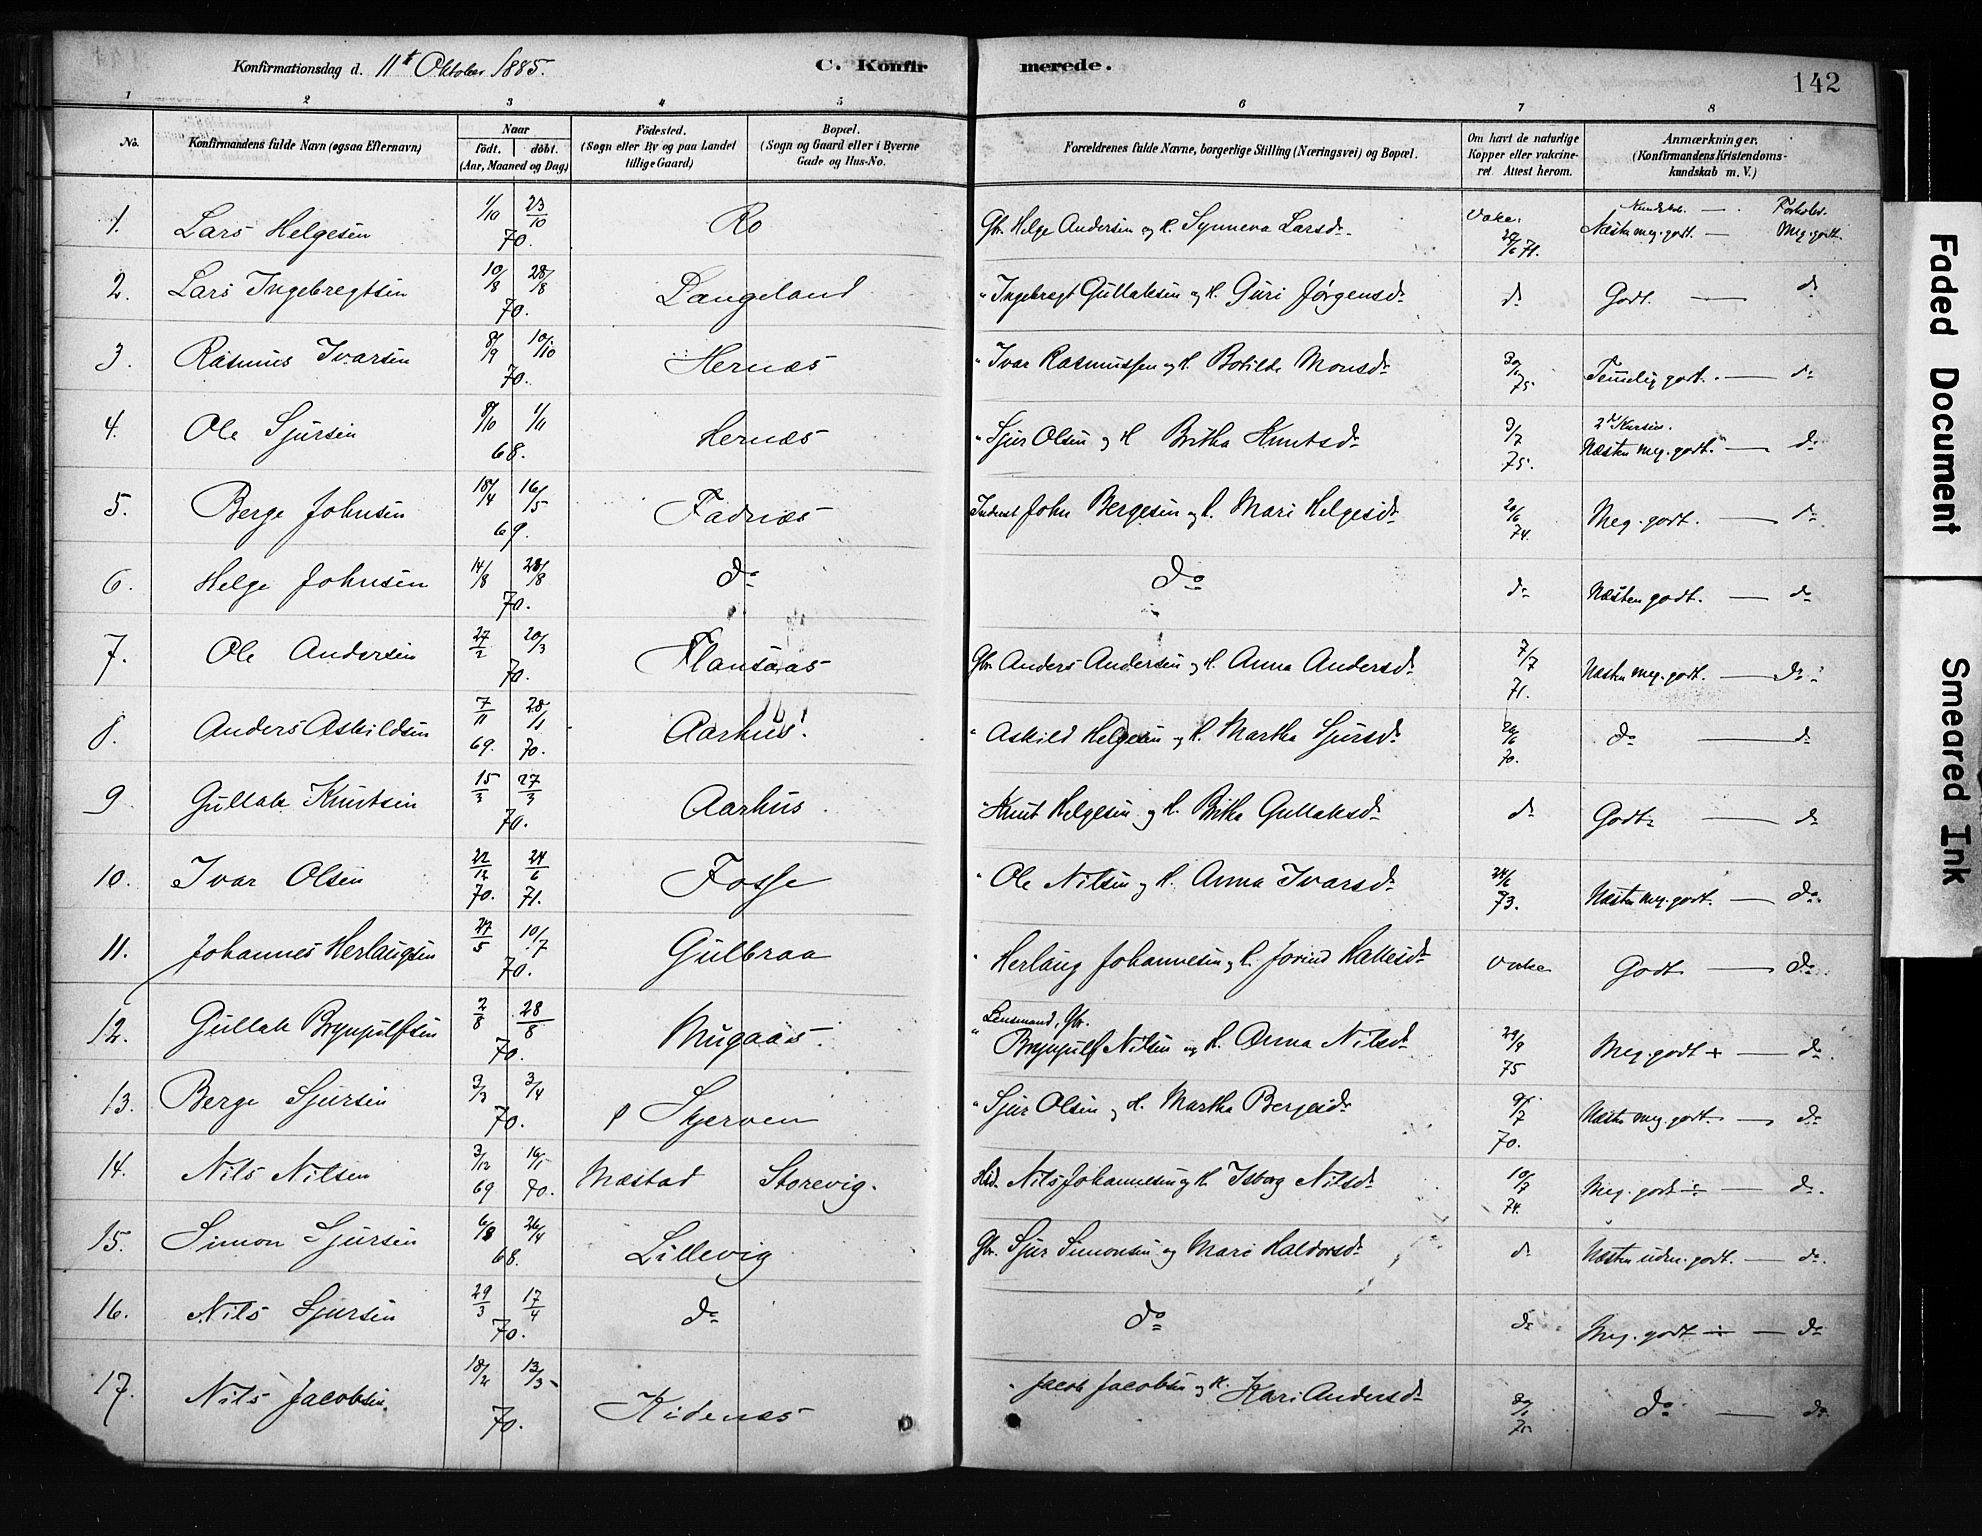 Konfirmationsdag d. 11t Oktober 1885. C. Konfirmerede. 142
1 2 3 4 5 6 7 8
No. Konfirmandens fulde Navn (ogsaa Efternavn) Naar født. døbt. (Aar, Maaned og Dag) Fødested. (Sogn eller By og paa Landet tillige Gaard) Bopæl. (Sogn og Gaard eller i Byerne Gade og Hus-No. Forældrenes fulde Navne, borgerlige Stilling (Næringsvei) og Bopæl. Om havt de naturlige Kopper eller vakcineret. Attest herom. Anmærkninger. (Konfirmandens Kristendomskundskab m. V.)
Kundskab. — Forhold.
1. Lars Helgesen 1/10 23/10 70. Ro Gbr. Helge Andersen og H. Synneva Larsd. Vakc. 71. Næsten meg. godt. — Meg. godt.
2. Lars Ingebregtsen 10/8 28/8 70. Langeland " Ingebregt Gullaksen og H. Guri Jørgensd. do Godt. — do
3. Rasmus Ivarsen 8/9 10/10 70. Hernæs " Ivar Rasmussen og H. Botilde Monsd. 75. Temelig godt. — do
4. Ole Sjursen 8/10 1/11 68. Hernæs " Sjur Olsen og H Britha Knutsd. 9/7 75. Næsten meg. godt. — do
5. Berge Johnsen 18/4 16/5 69. Fadnæs Inderst John Bergesen og H. Mari Helgesd. 20/6 74. Meg. godt. — do
6. Helge Johnsen 14/8 28/8 70. do do do Næsten godt. — do
7. Ole Andersen 27/2 20/3 70. Flansaas Gbr. Anders Andersen og H. Anna Andersd. 7/7 71. Næsten meg. godt. — do
8. Anders Askildsen 7/11 69. 28/1 70. Aarhus. " Askild Helgesen og H. Martha Sjursd. 26/6 70. do — do
9. Gullak Knutsen 15/3 27/3 70. Aarhus. " Knut Helgesen og H. Britha Gullaksd. do Godt — do
10. Ivar Olsen 22/12 70. 24/6 71. Fosse " Ole Nilsen og H. Anna Ivarsd. 24/6 73. Næsten meg. godt. — do
11. Johannes Herlaugsen 27/5 10/7 70. Gulbraa " Herlaug Johannesen og H. Jorind Hallesd. Vakc Godt — do
12. Gullak Brynjulfsen 2/8 28/8 70. Mugaas. " Lensmand, Gbr. Brynjulf Nilsen og H. Anna Nilsd. 29/9 75 Meg. godt + — do
13. Berge Sjursen 3/3 3/4 70. Skjerven " Sjur Olsen og H. Martha Bergesd. 70. Næsten meg. godt. — do
14. Nils Nilsen 3/12 69 16/1 70. Mæstad Storevig. Nils Johannesen og H. Isborg Nilsd. 10/7 74. Meg. godt ÷ — do.
15. Simon Sjursen 26/4 68. Lillevig Gbr. Sjur Simonsen og Mari Haldorsd. do Næsten udm. godt. — do.
16. Nils Sjursen 29/3 17/4 70. do do do Meg. godt ÷ — do
17. Nils Jacobsen. 18/2 13/3 70. Kidenæs " Jacob Jacobsen og H. Kari Andersd. 75 do — do.
Faded Document
Smeared Ink